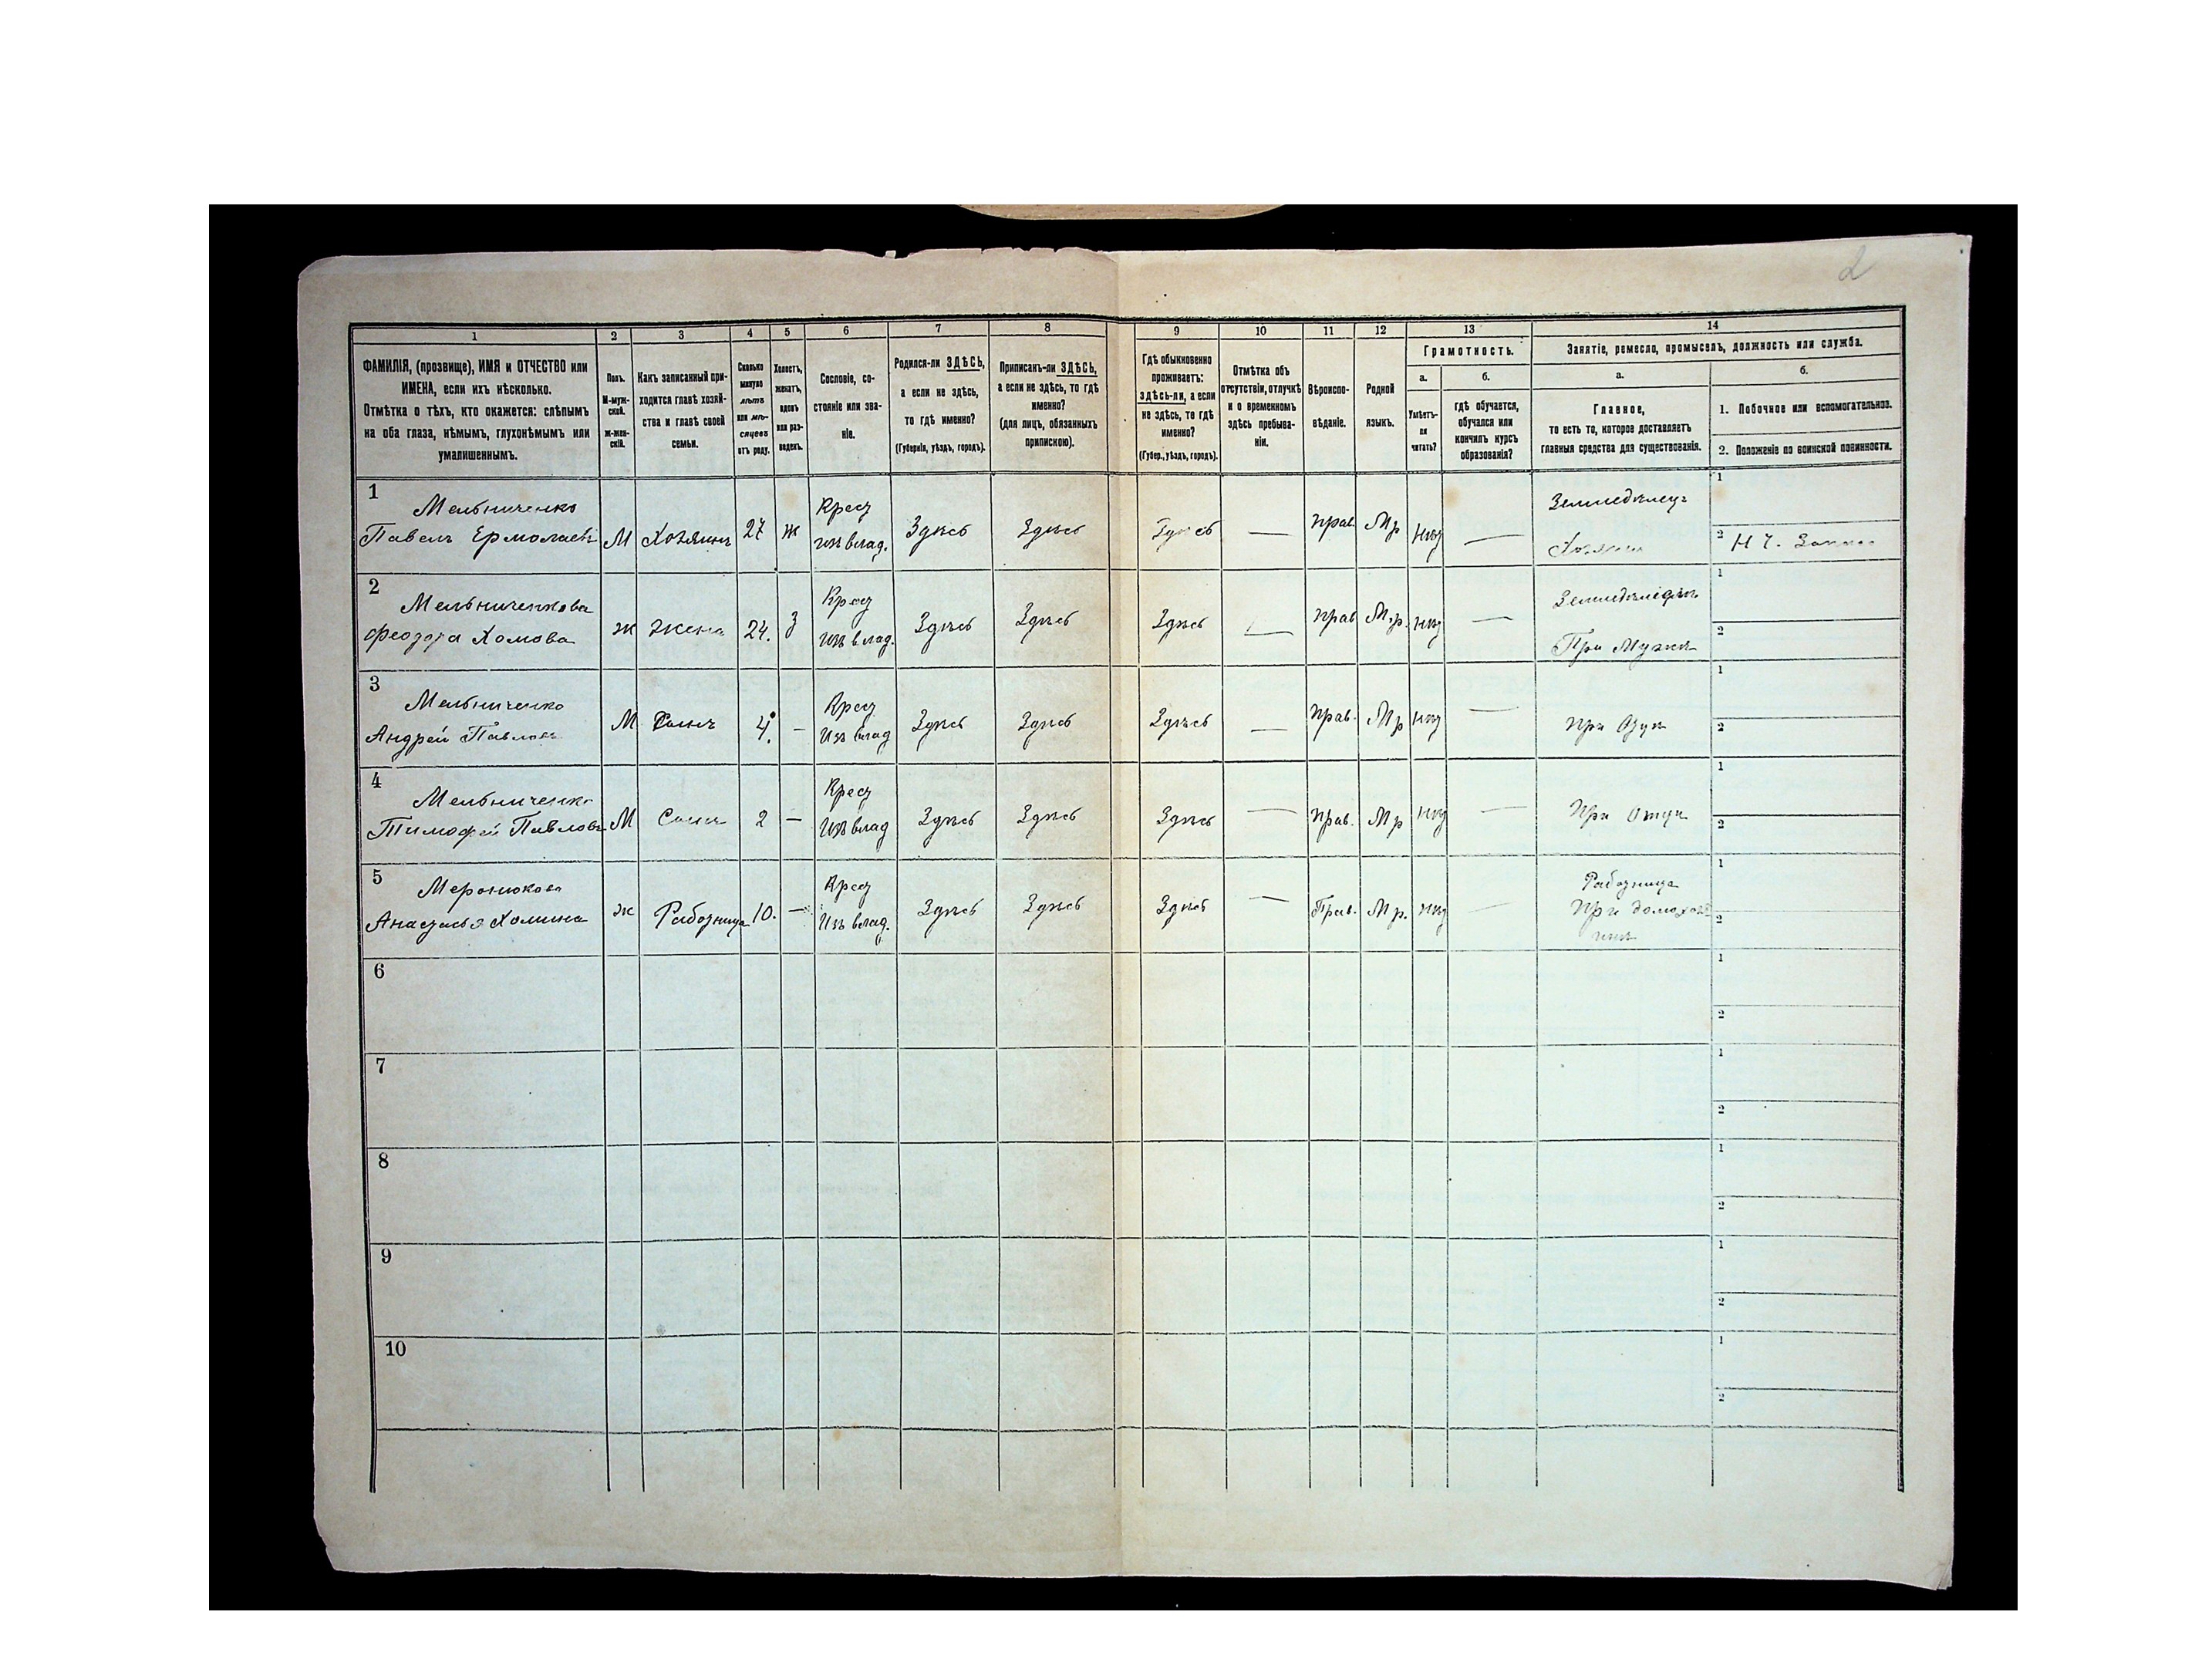 2
1
2
3
4
5
6
7
8
9
10
11
12
13
14
ФАМИЛІЯ, (прозвище), ИМЯ и ОТЧЕСТВО или
ИМЕНА, если ихъ нѣсколько.
Отмѣтка о тѣхъ, кто окажется: слѣпымъ
на оба глаза, нѣмымъ, глухонѣмымъ или
умалишеннымъ.
Полъ.
М-муж-
ской.
ж-жен-
скій.
Какъ записанный при-
ходится главѣ хозяй-
ства и главѣ своей
семьи.
Сколько
минуло
лѣтъ
или мѣ-
сяцевъ
отъ роду.
Холостъ,
женатъ,
вдовъ
или раз-
веденъ.
Сословіе, со-
стояніе или зва-
ніе.
Родился-ли ЗДѢСЬ,
а если не здѣсь,
то гдѣ именно?
(Губернія, уѣздъ, городъ).
Приписанъ-ли ЗДѢСЬ,
а если не здѣсь, то гдѣ
именно?
(для лицъ, обязанныхъ
припискою).
Гдѣ обыкновенно
проживаетъ:
здѣсь-ли, а если
не здѣсь, то гдѣ
именно?
(Губер., уѣздъ, городъ).
Отмѣтка объ
отсутствіи, отлучкѣ
и о временномъ
здѣсь пребыва-
ніи.
Вѣроиспо-
вѣданіе.
Родной
языкъ.
Грамотность.
а.
Умѣетъ-
ли
читать?
б.
гдѣ обучается,
обучался или
кончилъ курсъ
образованія?
Занятіе, ремесло, промыселъ, должность или служба.
а.
Главное,
то есть то, которое доставляетъ
главныя средства для существованія.
б.
1. Побочное или вспомогательное.
2. Положеніе по воинской повинности.
1
Мельниченко
Павелъ Ермолаевъ
М
Хозяинъ
27
ж
Крест
изъ влад.
Здѣсь
Здѣсь
Здѣсь
—
прав.
Мр
нѣт
—
Земледѣлецъ
Хозяинъ
1
2
2
Мельниченкова
Феодора Хомова
ж
жена
24.
з
Крест
изъ влад.
Здѣсь
Здѣсь
Здѣсь
—
прав
М.р.
нѣт
—
При Мужѣ
1
2
3
Мельниченко
Андрей Павловъ
М
Сынъ
4.
—
Крест
Изъ влад
Здѣсь
Здѣсь
Здѣсь
—
прав.
Мр
нѣт
—
при Отцѣ
1
2
4
Мельниченко
Тимофей Павловъ
М
Сынъ
2
—
Крест
Изъ влад
Здѣсь
Здѣсь
Здѣсь
—
прав.
Мр
нѣт
—
При Отцѣ
1
2
5
Анастасья Хомина
ж
Работница
10.
—
Крест
Изъ влад.
Здѣсь
Здѣсь
Здѣсь
—
Прав.
Мр.
нѣт
—
Работница
При домохозя
инѣ
1
2
6
1
2
7
1
2
8
1
2
9
1
2
10
1
2